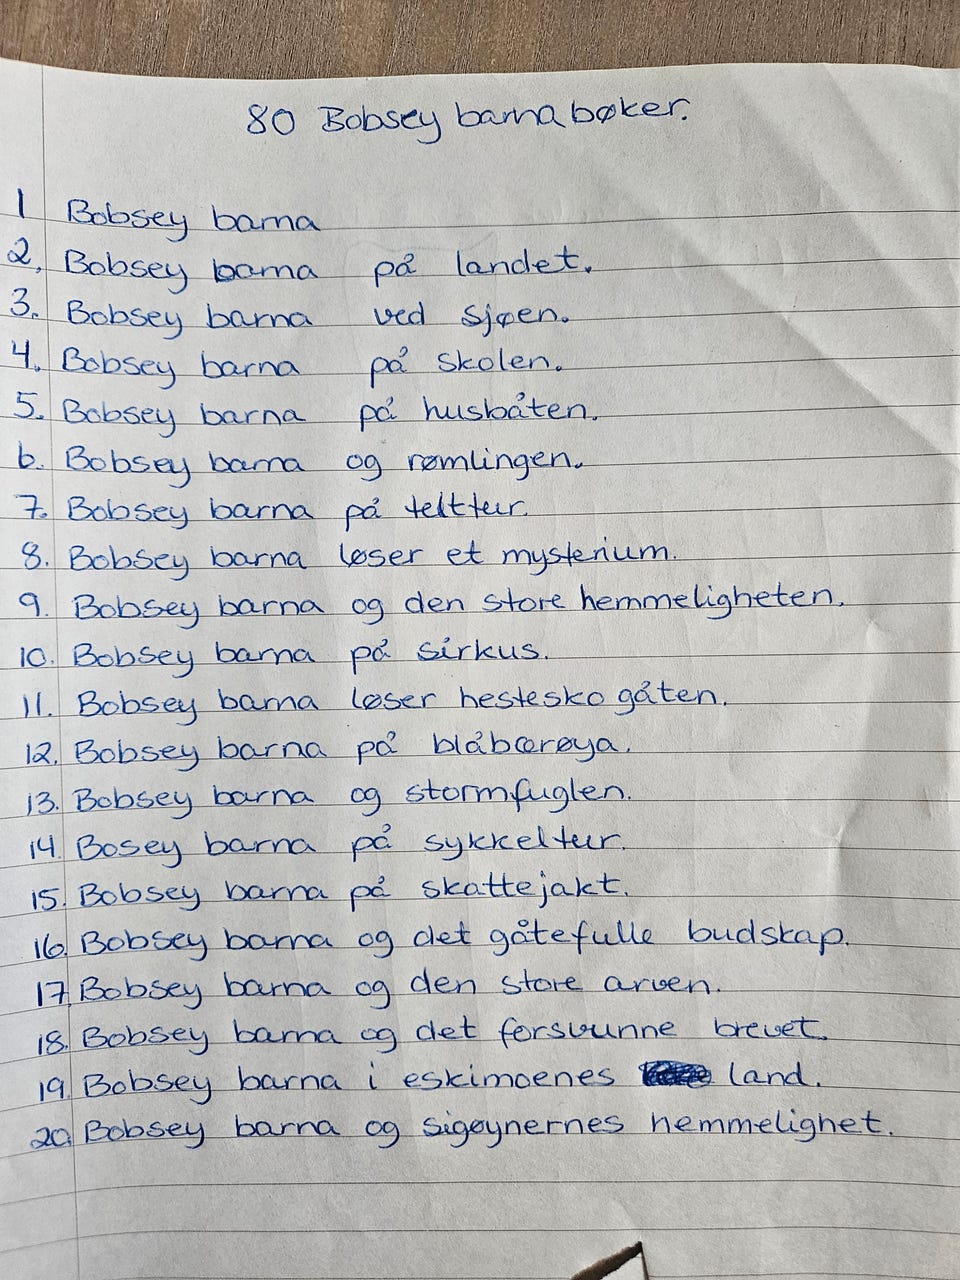 80 Bobsey barnabøker.
1 Bobsey barna
2. Bobsey barna på landet.
3. Bobsey barna ved sjøen.
4. Bobsey barna på skolen.
5. Bobsey barna på husbåten.
6. Bobsey barna og rømlingen.
7. Bobsey barna på telttur.
8. Bobsey barna løser et mysterium.
9. Bobsey barna og den store hemmeligheten.
10. Bobsey barna på sirkus.
11. Bobsey barna løser hestesko gåten.
12. Bobsey barna på blåbærøya.
13. Bobsey barna og stormfuglen.
14. Bosey barna på sykkeltur.
15. Bobsey barna på skattejakt.
16. Bobsey barna og det gåtefulle budskap.
17. Bobsey barna og den store arven.
18. Bobsey barna og det forsvunne brevet.
19. Bobsey barna i eskimoenes land.
20. Bobsey barna og sigøynernes hemmelighet.